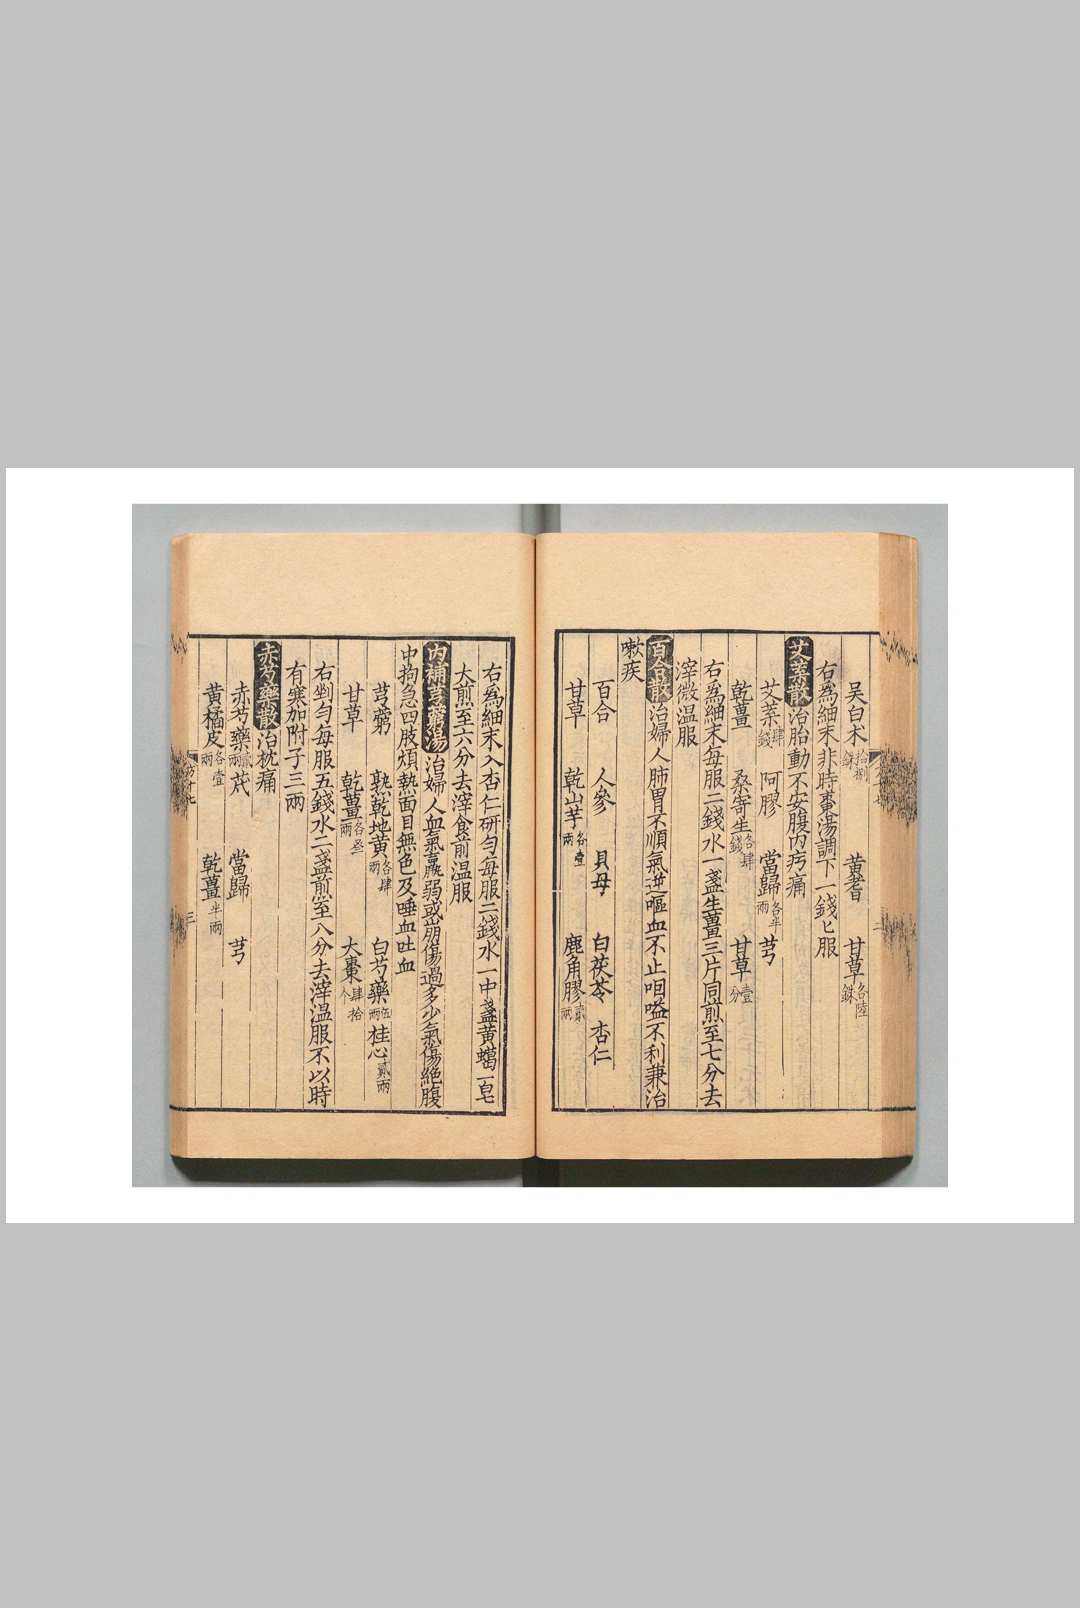 吴白朮拾捌銖 黄耆 甘草各陸銖
右為細末非時棗湯調下一錢匕服
艾葉散治胎動不安腹内疞痛
艾葉肆錢 阿膠 當歸各半兩 芎
乾薑 桑寄生各肆錢 甘草壹分
右為細末每服二錢水一盞生薑三片同煎至七分去
滓微温服
百合散治婦人肺胃不順氣逆嘔血不止咽嗌不利兼治
嗽疾
百合 人參 貝母 白茯苓 杏仁
甘草 乾山芋各壹兩 鹿角膠貳兩
右為細末入杏仁研勻每服二錢水一中盞黄蠟一皂
大煎至六分去滓食前温服
内補芎藭湯治婦人血氣羸弱或崩傷過多少氣傷絶腹
中拘急四肢煩熱面目無色及唾血吐血
芎藭 熟乾地黄各肆兩 白芍藥伍兩 桂心貳兩
甘草 乾薑各叁兩 大棗肆拾个
右剉勻每服五錢水二盞煎至八分去滓温服不以時
有寒加附子三兩
赤芍藥散治枕痛
赤芍藥貳兩 芪 當歸 芎
黄橘皮各壹兩 乾薑半兩
方十七
三